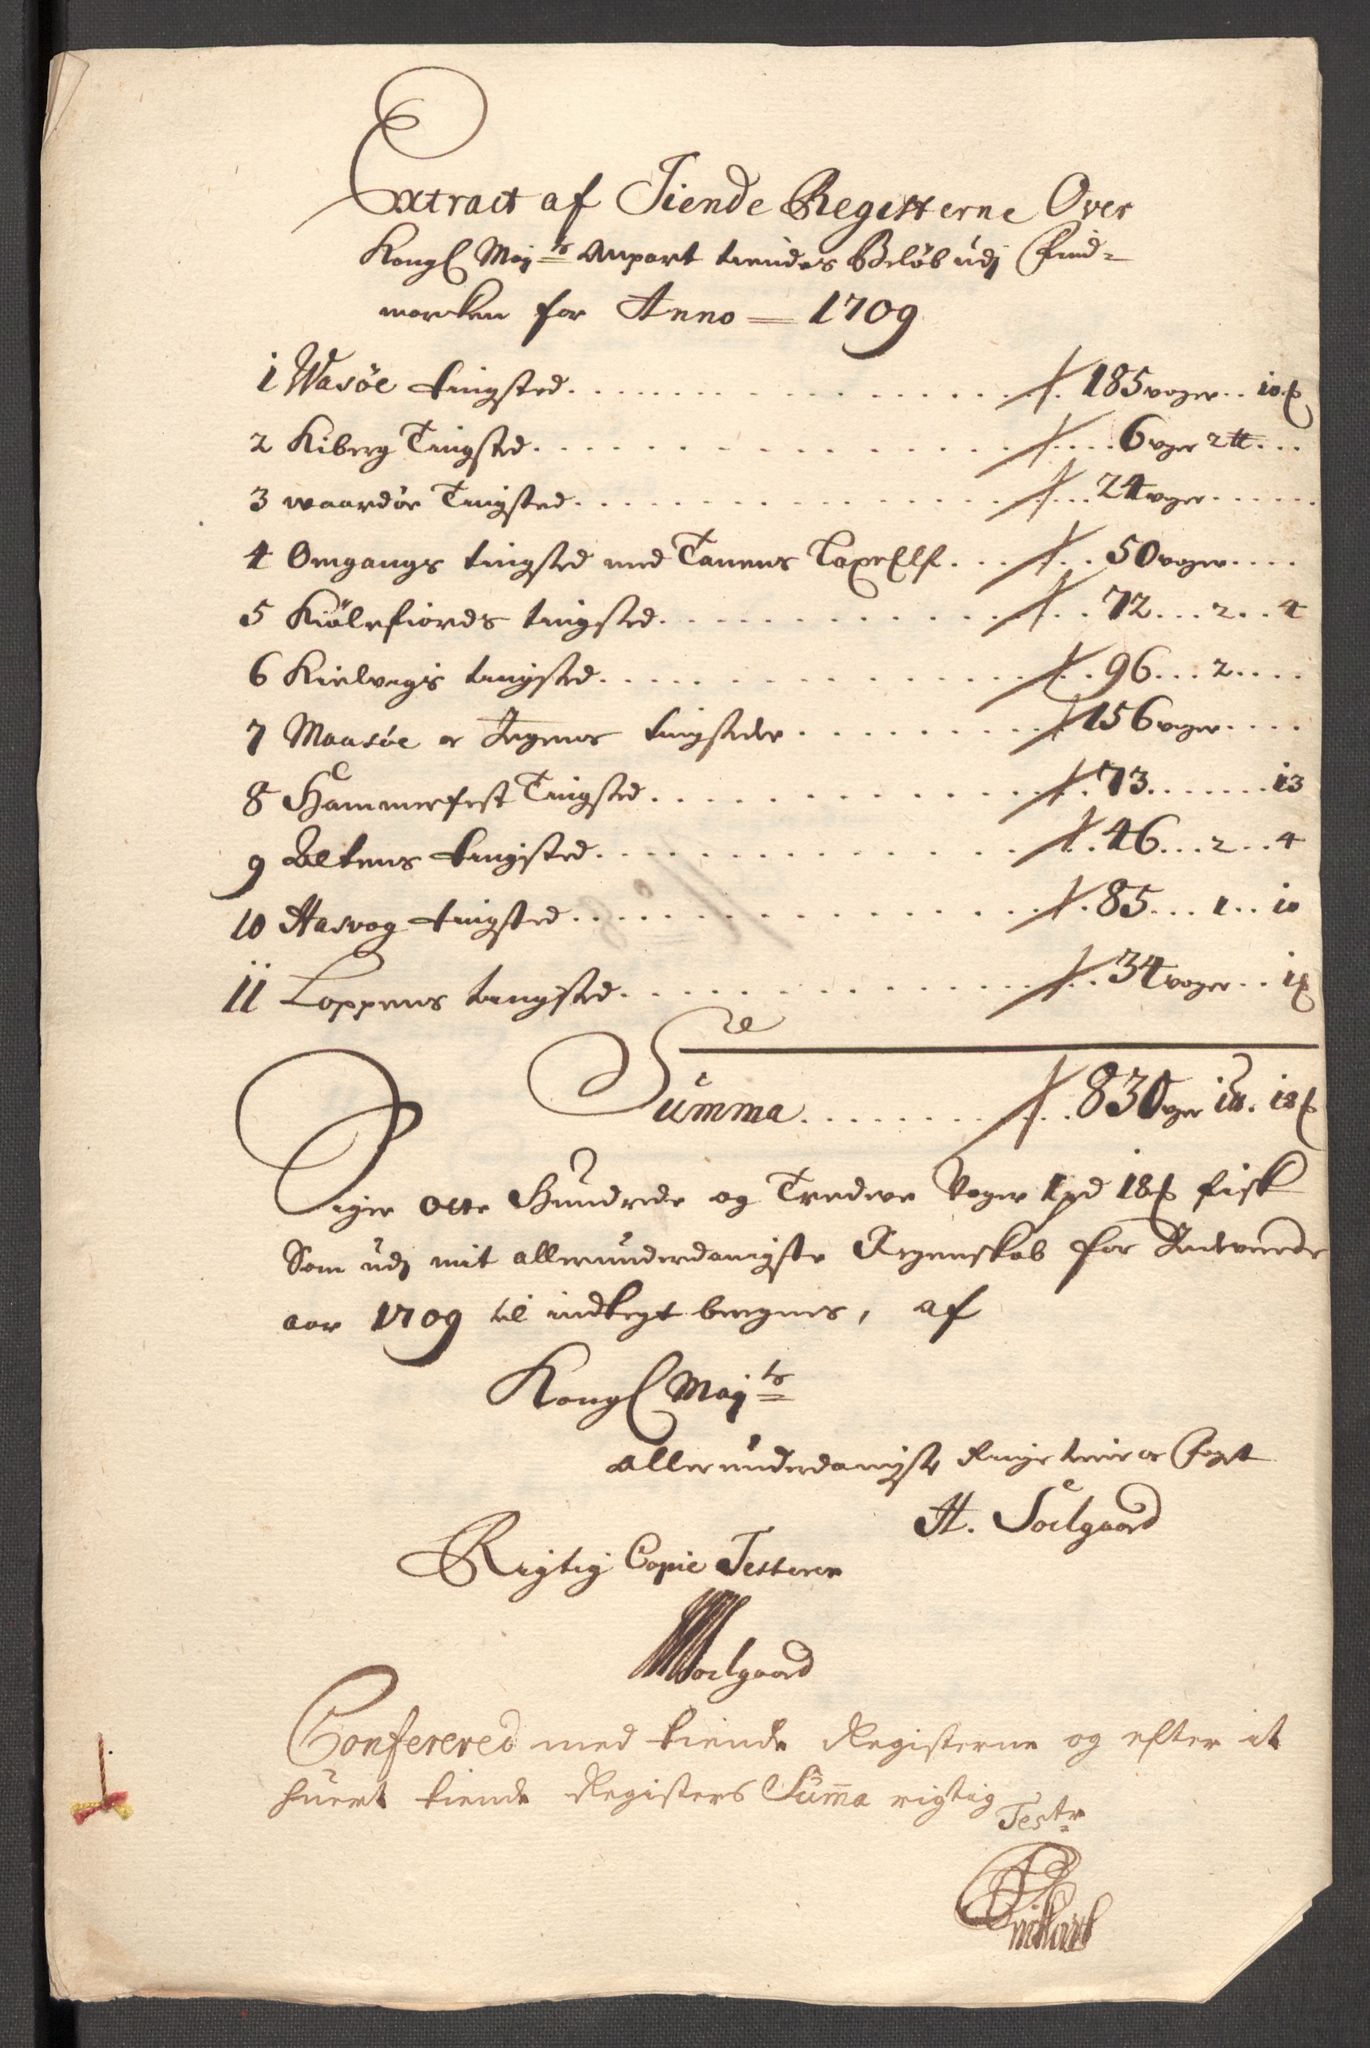 Extract af Tiende Registerne Over
Kongl Maj:ts Anpart tiendes Beløb udj Find-
marcken for Anno 1709
1 Wasöe tingsted 185 voger 10 ℔
2 Kiberg Tingsted 6 voger 2 tt
3 waardøe Tingsted 24 voger
4 Omgangs tingsted med Tanens LaxeElf 50 voger
5 Kiölefiords tingsted 72 2 4
6 Kielvegs tingsted 96 2
7 Maasöe oc Ingens tingsteder 156 voger
8 Hammerfest Tingsted 73 13
9 Altens tingsted 46 2 4
10 Hasvog tingsted 85 1 10
11 Loppens tingsted 34 voger 1 ℔
Summa 830 voger 1 18 ℔
Siger Otte Hundrede og Tredeve Voger 1 pd 18 ℔ fisk
Som udj mit allerunderdanigste Regenskab for
aar 1709 til indtegt beregnes, af
Kongl Maj:ts
allerunderdanigste tiener oc Foget
H. Soelgaard
Rigtig Copie Testerer
Soelgaard
Conferered med tiende Registerne og efter it
huert tiende Registers Suma rigtig
Testr